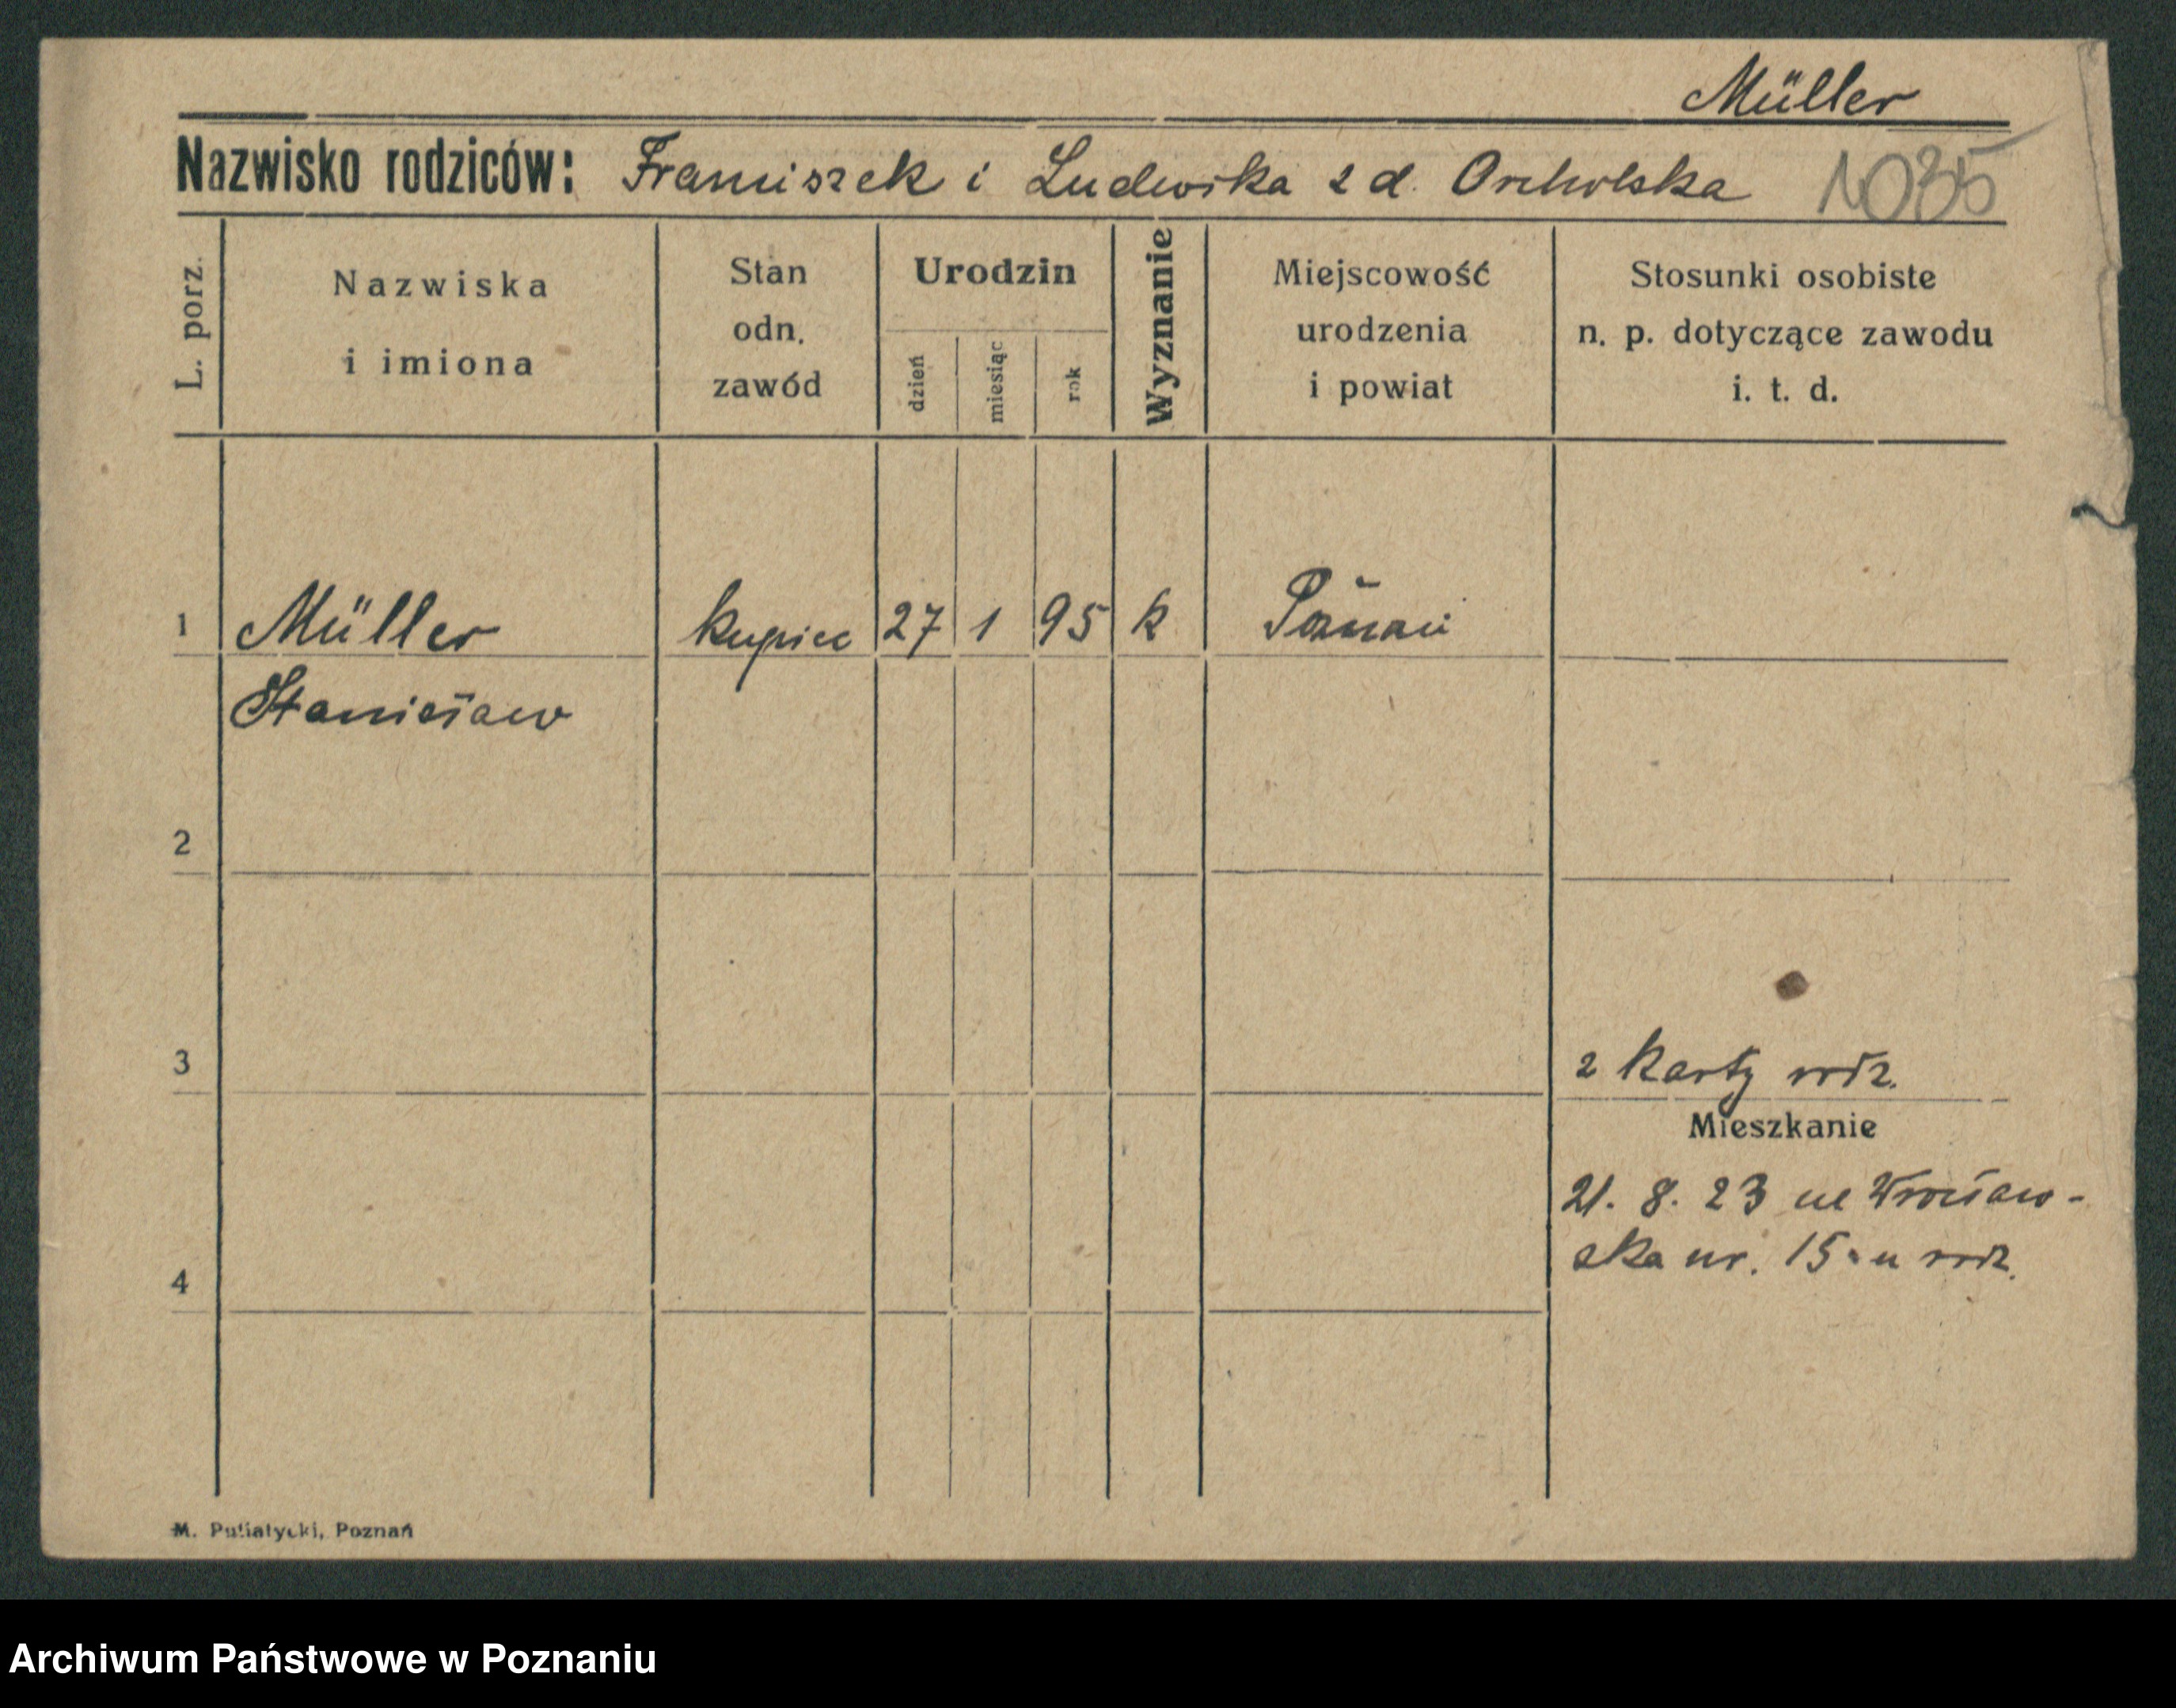 Müller
Nazwisko rodziców: Franciszek i Ludwika z d. Orcholska
1035
L. porz.
Nazwiska
i imiona
Stan
odn.
zawód
Urodzin
dzień
miesiąc
rok
Wyznanie
Miejscowość
urodzenia
i powiat
Stosunki osobiste
n. p. dotyczące zawodu
i. t. d.
1 Müller kupiec 27 1 95 k Poznań
Stanisław
2
3
z karty rodz.
Mieszkanie
21. 8. 23 ul Wrocław-
ska nr. 15 u rodz.
4
M. Putiatycki, Poznań
Archiwum Państwowe w Poznaniu